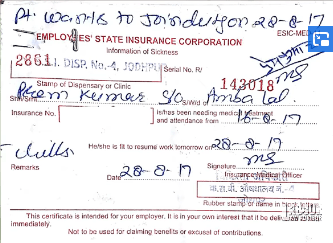 Pt. wants to join duty on 28-8-17
ESIC-MED
EMPLOYEES' STATE INSURANCE CORPORATION
Information of Sickness
2861 I. DISP. No.-4, JODHPUR Serial No. R/ 143018
Stamp of Dispensary or Clinic
Prem Kumar S/o Amba Lal
Insurance No. is/has been needing medical treatment
and attendance from 16-8-17
He/she is fit to resume work tomorrow on 28-8-17
Remarks Date 28-8-17 Signature
Insurance Medical Officer
क.रा.बी. औषधालय नं.
Rubber stamp
This certificate is intended for your employer. It is in your own interest that it be delivered
immediately.
Not to be used for claiming benefits or excusal of contributions.